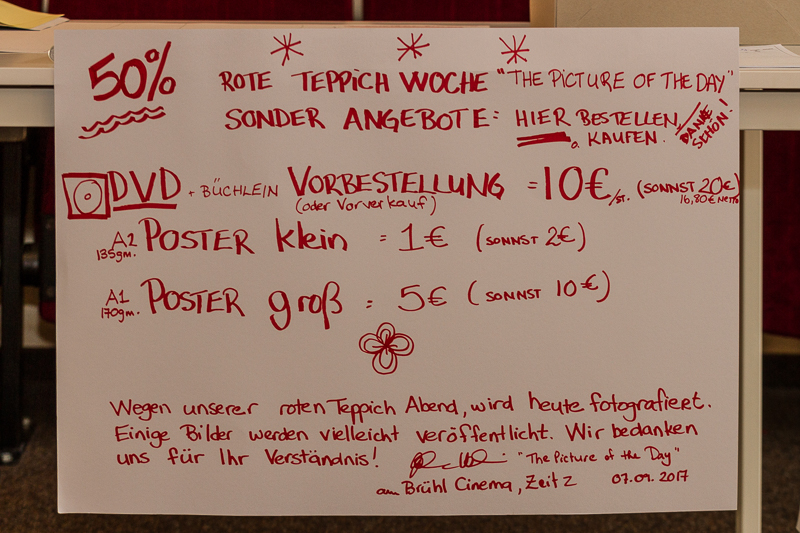 50% ROTE TEPPICH WOCHE "THE PICTURE OF THE DAY"
SONDER ANGEBOTE: HIER BESTELLEN/
o. KAUFEN. DANKE SCHÖN!
DVD + BÜCHLEIN VORBESTELLUNG = 10€/ST. (SONNST 20€)
(oder Vorverkauf) 16,80€ NETTO
A2 135gm. POSTER klein = 1€ (SONNST 2€)
A1 170gm. POSTER groß = 5€ (SONNST 10€)
Wegen unserer roten Teppich Abend, wird heute fotografiert.
Einige Bilder werden vielleicht veröffentlicht. Wir bedanken
uns für Ihr Verständnis! "The Picture of the Day"
am Brühl Cinema, Zeitz 07.09.2017